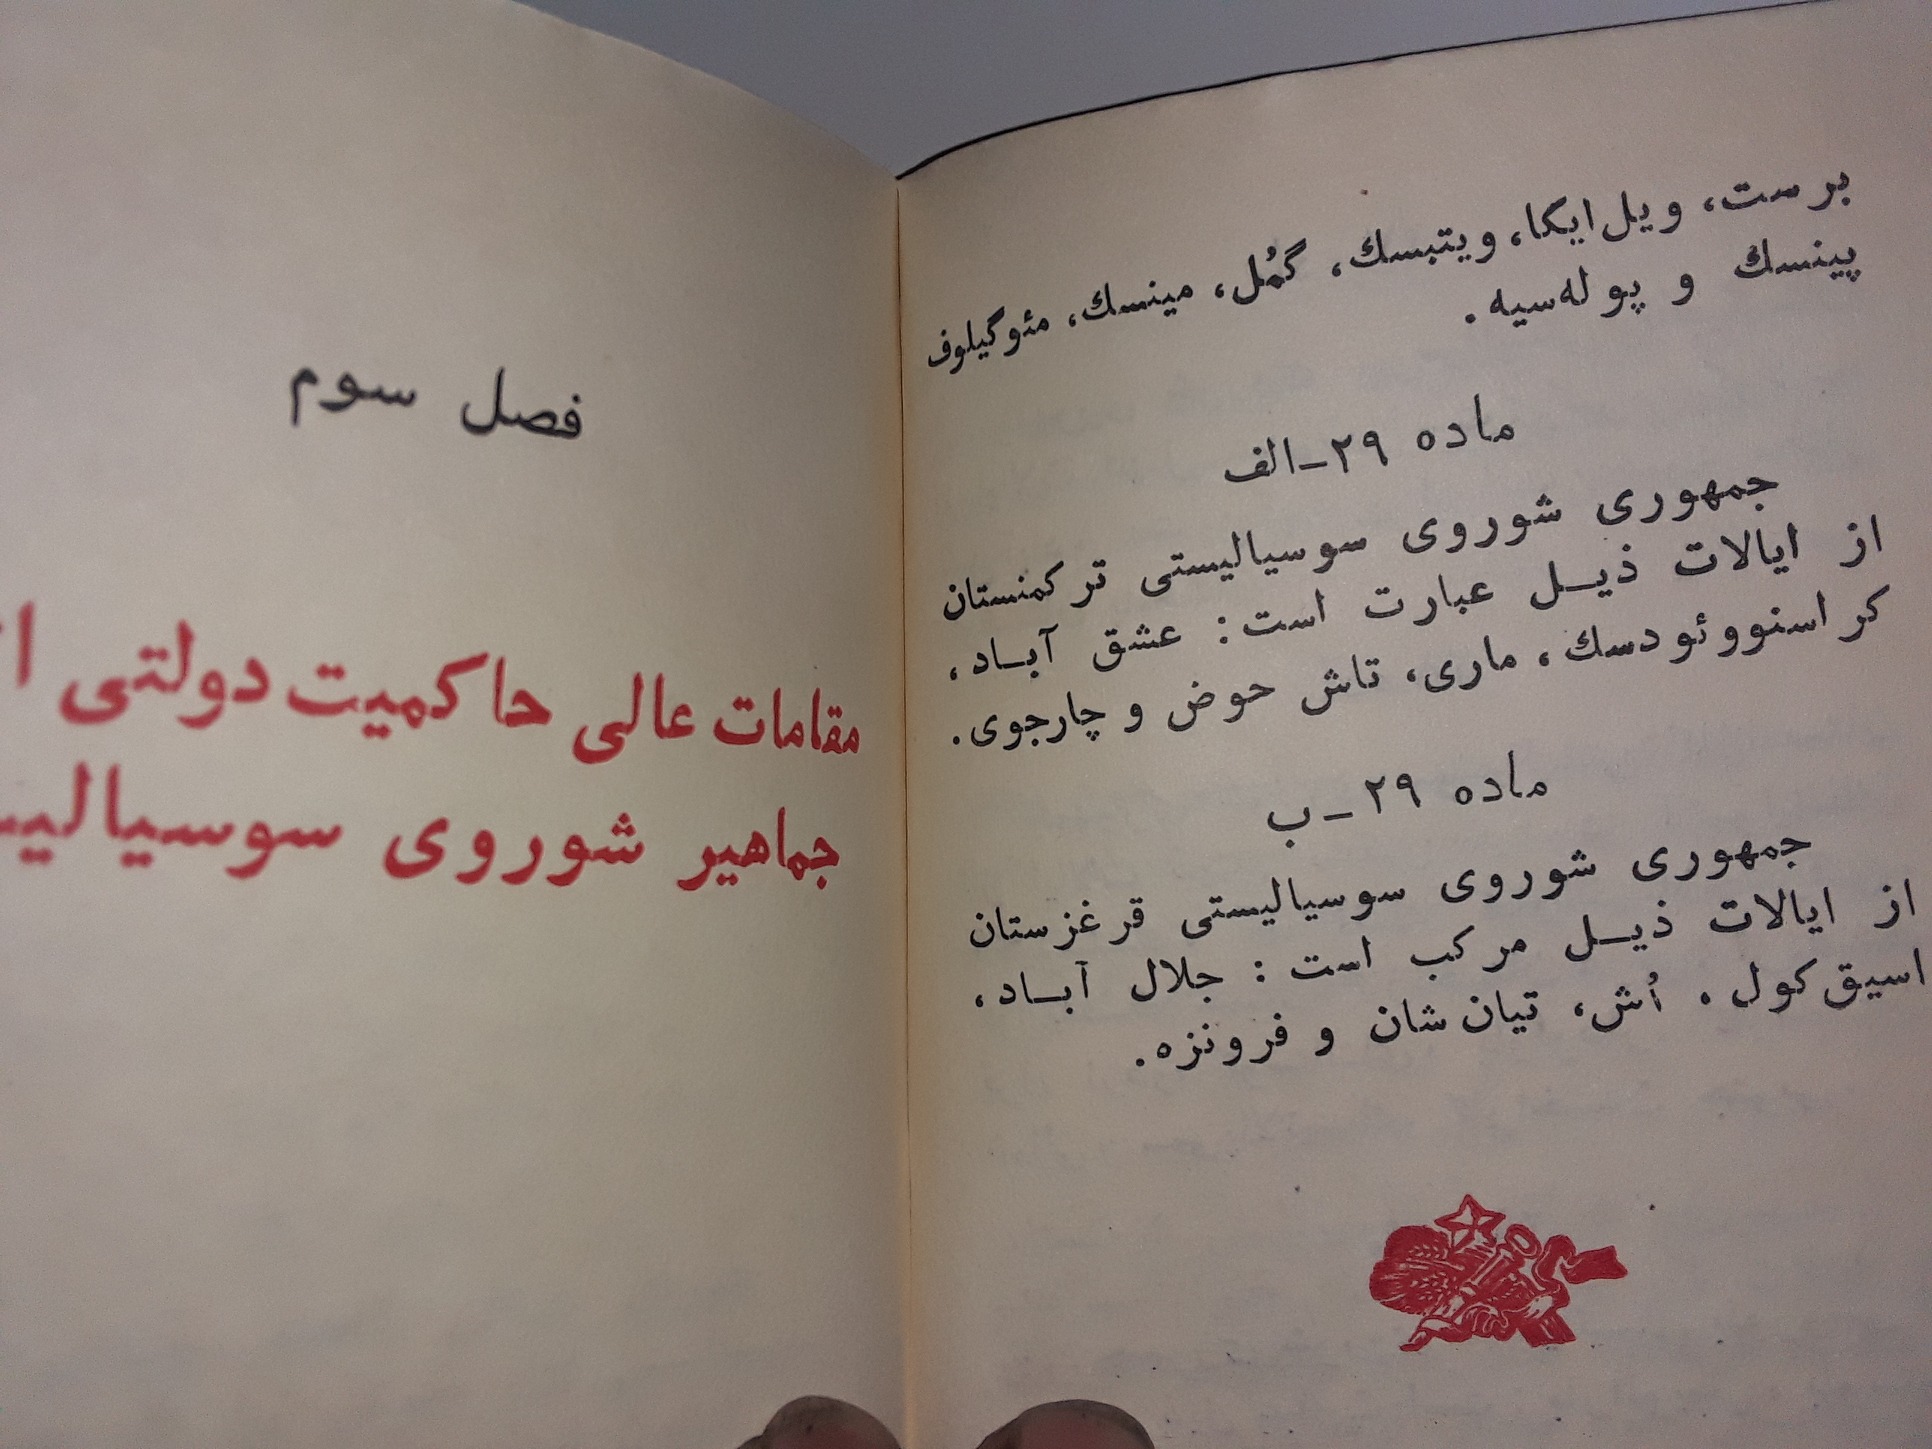 برست، ویل ایکا، ویتبسك، گمُل، مینسك، مئوگیلوف
پینسك و پوله‌سیه.
ماده ۲۹-الف
جمهوری شوروی سوسیالیستی ترکمنستان
از ایالات ذیل عبارت است: عشق آباد،
کراسنووئودسك، ماری، تاش حوض و چارجوی.
ماده ۲۹-ب
جمهوری شوروی سوسیالیستی قرغزستان
از ایالات ذیل مرکب است: جلال آباد،
اسیق کول. اُش، تیان شان و فرونزه.
فصل سوم
مقامات عالی حاکمیت دولتی
جماهیر شوروی